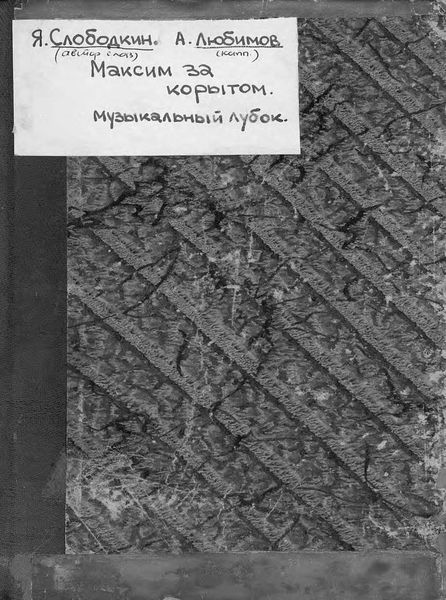 Я. Слободкин. А. Любимов
(автор слов) (комп.)
Максим за
корытом.
Музыкальный лубок.